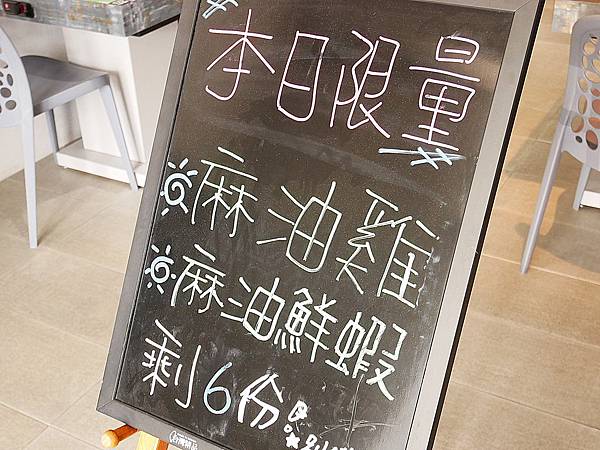 本日限量
麻油雞
麻油鮮蝦
剩6份!